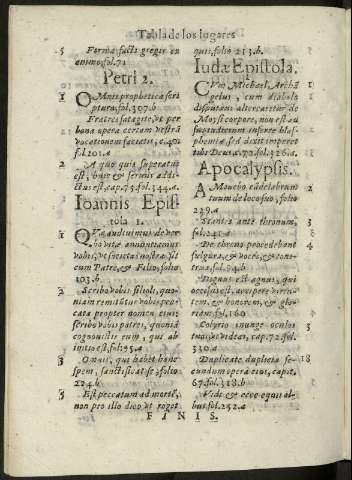 Tabla de los lugares
5 Forma facti gregis ex
animo, fol. 71
Petri 2.
1 OMnis prophetica scri
ptura, fol. 307. b
Fratres satagite, vt per
bona opera certam vestrã
vocationem faciatis, c. 40
fol. 201. a
2 A quo quis superatus
est, huic & seruus addi-
ctus est, cap. 75. fol. 344. a
Ioannis Epis
tola 1.
1 QVæ audiuimus de ver
bo vitæ annuntiamus
vobis, vt societas nostra sit
cum Patre, & Filio, folio
103. b
2 Scribo vobis filioli, quo-
niam remittütur vobis pec
cata propter nomen eius:
scribo vobis patres, quoniã
cognouistis eum, qui ab
initio est, fol. 95. a
3 Omnis, qui habet hanc
spem, sanctificat se, folio
224. b
5 Est peccatum ad mortẽ,
non pro illo dico vt roget
quis, folio 213. b.
Iudæ Epistola.
1 CVm Michael Archã
gelus, cum diabolo
disputans altercaretur de
Moysi corpore, non est au
sus iudicium inferre blas-
phemiæ sed dixit imperet
tibi Deus, c. 72. fol. 326. a.
Apocalypsis.
2 MOuebo cãdelabrum
tuum de loco suo, folio
229. a
Stantes ante thronum,
fol. 241. a
4 De throno procedebant
fulgura, & voces, & toni-
trua, fol. 94. b
Dignus est agnus, qui
occisus est, accipere virtu-
tem, & honorem, & glo-
riam, fol. 160
3 Colyrio inunge oculos
tuos, vt videas, cap. 72. fol.
330. a
18 Duplicate duplicia se-
cundum opera eius, capit.
67. fol. 318. b
Vidi & ecce equus al-
bus fol. 252. a
FINIS.